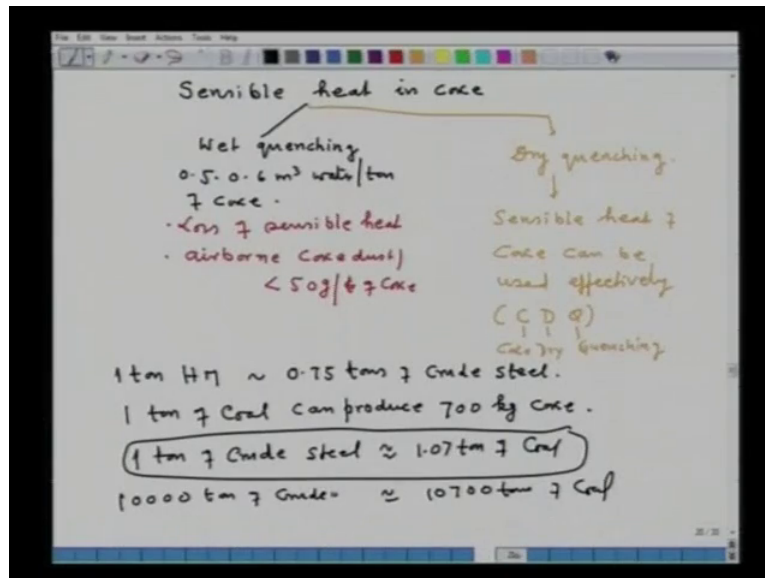 File Edit View Insert Actions Tools Help
Sensible heat in coke
Wet quenching
0.5-0.6 m³ water/ton
of coke.
· Loss of sensible heat
· airborne coke dust)
< 50g/t of Coke
Dry quenching.
Sensible heat of
Coke can be
used effectively
(C D Q)
Coke Dry Quenching
1 ton HM ~ 0.75 tons of Crude steel.
1 ton of Coal can produce 700 kg coke.
1 ton of Crude steel ≈ 1.07 ton of Coal
10000 ton of Crude ≈ 10700 tons of Coal